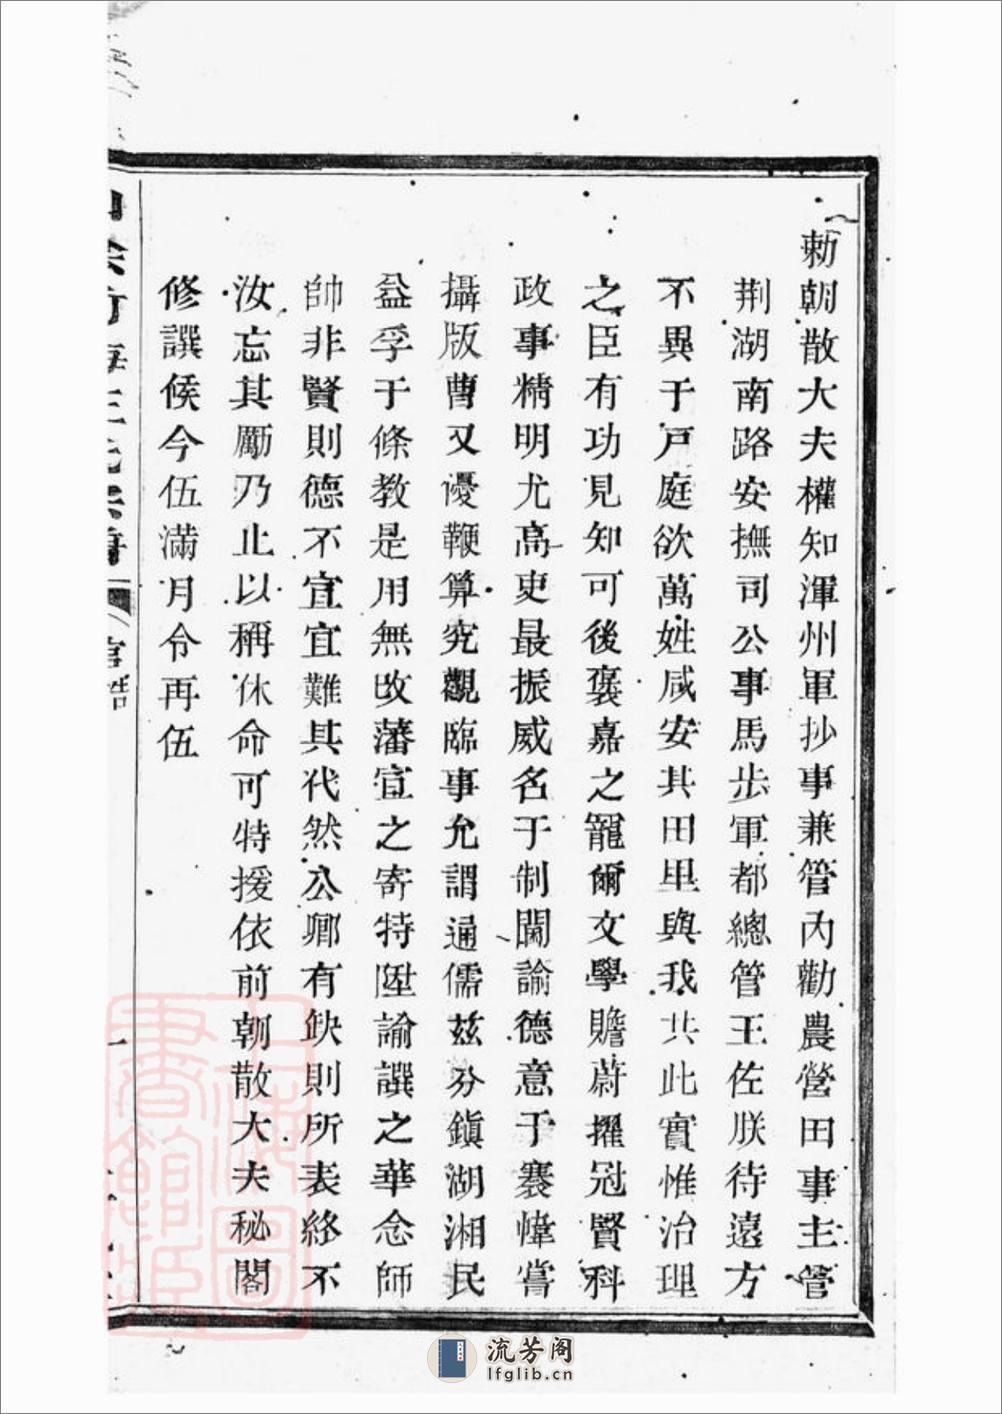 勅朝散大夫權知渾州軍抄事兼管內勸農營田事主管
荆湖南路安撫司公事馬步軍都總管王佐朕待遠方
不異于戸庭欲萬姓咸安其田里與我共此實惟治理
之臣有功見知可後褒嘉之寵爾文學贍蔚擢冠賢科
政事精明尤高吏最振威名于制閫諭德意于褰幃嘗
攝版曹又優鞭算究觀臨事允謂通儒兹分鎮湖湘民
益孚于條教是用無改藩宣之寄特陞諭譔之華念師
帥非賢則德不宣宜難其代然公卿有缺則所表終不
汝忘其勵乃止以稱休命可特援依前朝散大夫秘閣
修譔候今伍滿月令再伍
官誥
上海圖書館
流芳阁
lfglib.cn